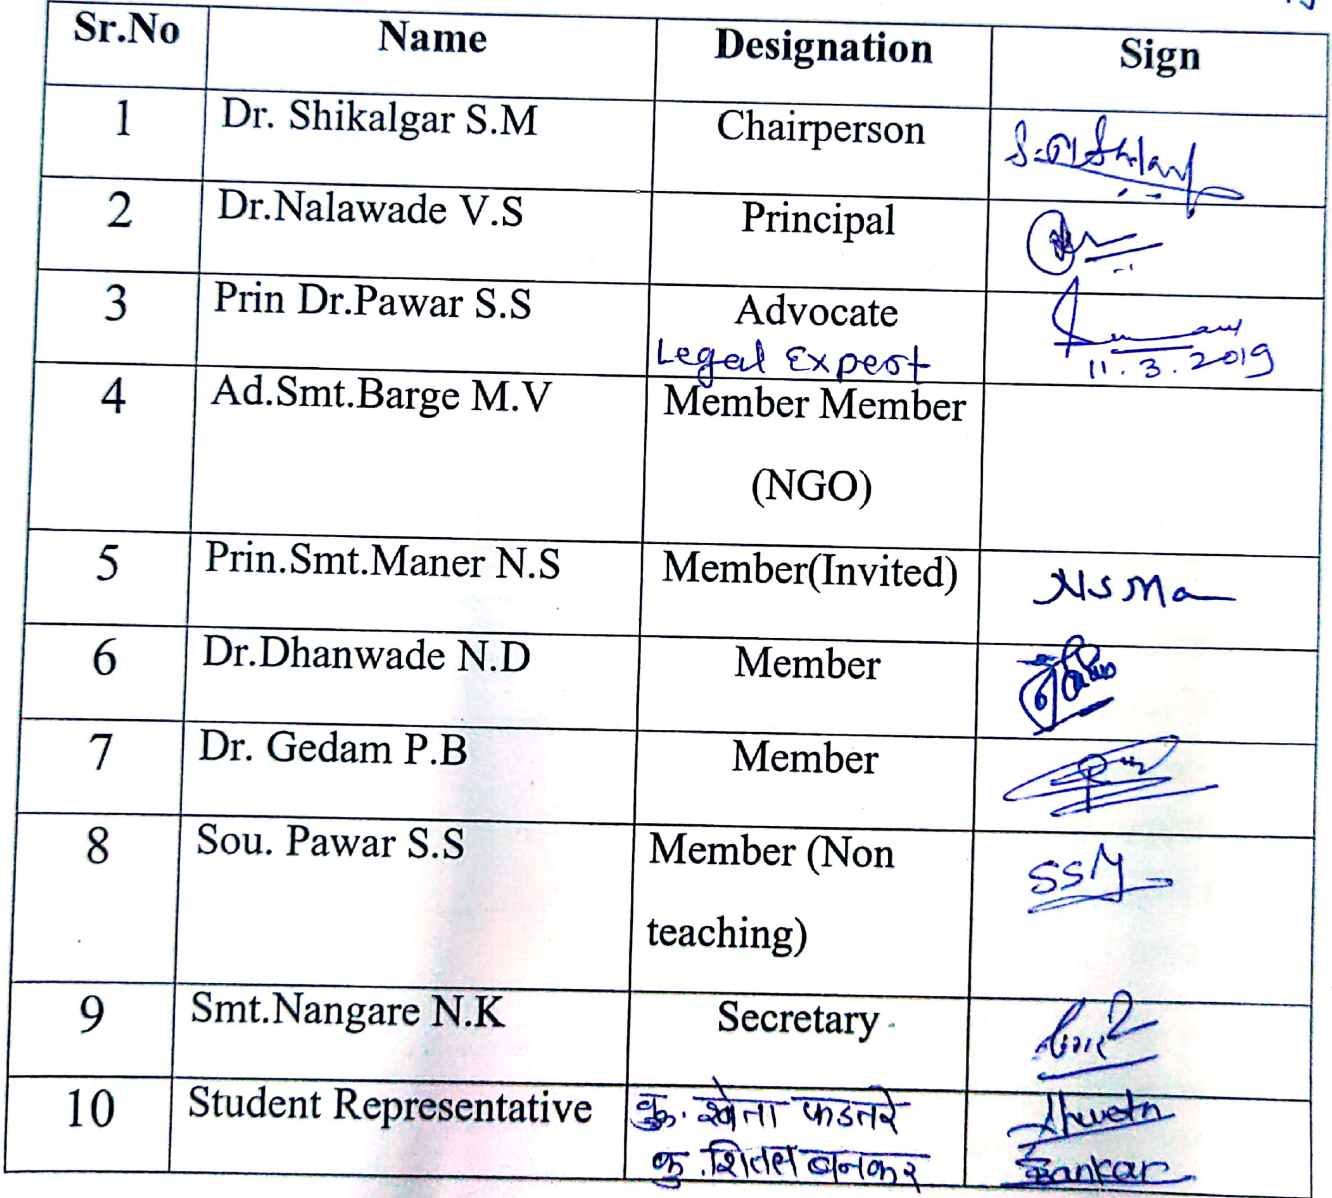 Sr.No Name Designation Sign
1 Dr. Shikalgar S.M Chairperson
2 Dr.Nalawade V.S Principal
3 Prin Dr.Pawar S.S Advocate
Legal Expert 11.3.2019
4 Ad.Smt.Barge M.V Member Member
(NGO)
5 Prin.Smt.Maner N.S Member(Invited)
6 Dr.Dhanwade N.D Member
7 Dr. Gedam P.B Member
8 Sou. Pawar S.S Member (Non
teaching)
9 Smt.Nangare N.K Secretary
10 Student Representative कु. श्वेता फडतरे Shweta
कु. शितल बनकर Bankar